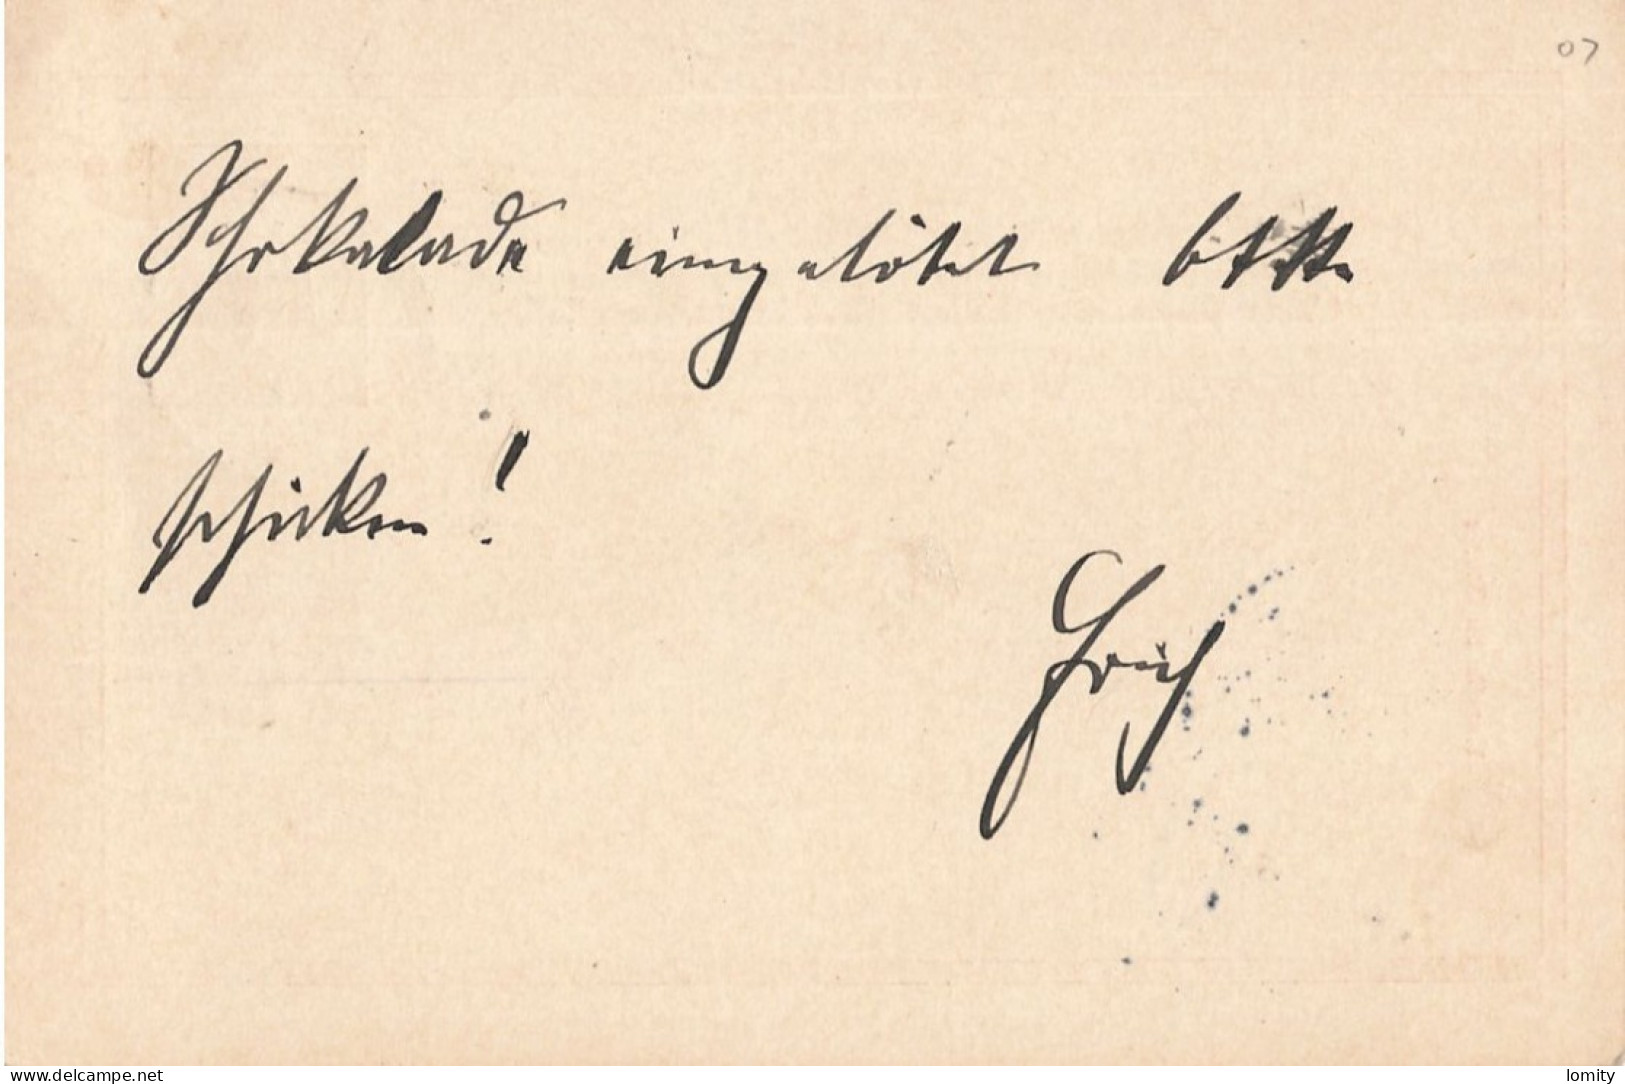 07
Schokolade eingelötet bitte
schicken!
Erich
delcampe.net
lomity